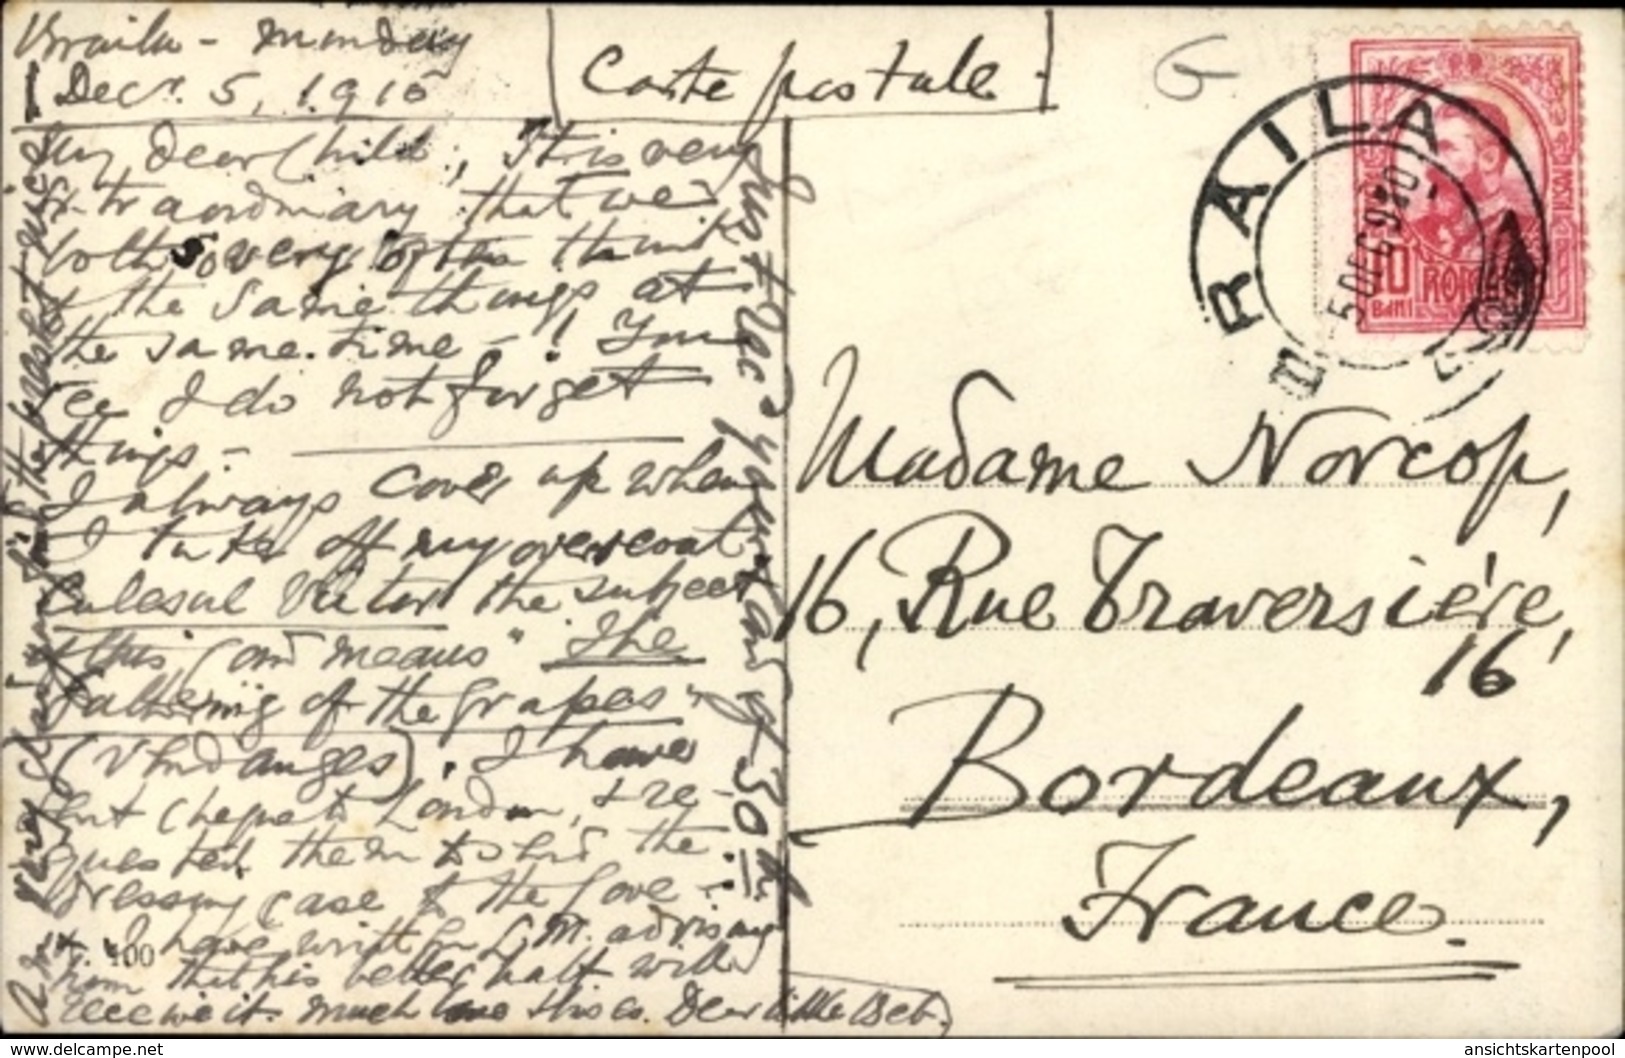 Braila - Monday
Dec. 5, 1910
Carte postale
My dear Child, It is very
Extraordinary that we
both so very often think
of the same things at
the same time - ! You
see I do not forget
things -
I always cover up when
I take off my overcoat
Culesul Viilor the subject
of this card means "The
Gathering of the Grapes"
(Vendanges). I have
sent cheque to London, & re-
quested them to send the
dressing case to the
I have written G. M. advising
him that his better half will
receive it. Much love this is. Dear little Deb.
Just rec'd your card of 30th
Am very glad you find the photos nice
400
G
BRAILA
5 DEC 910
10
BANI
ROMANIA
Madame Norcop,
16, Rue Traversière,
16
Bordeaux,
France.
www.ansichtskartenpool.de
ansichtskartenpool